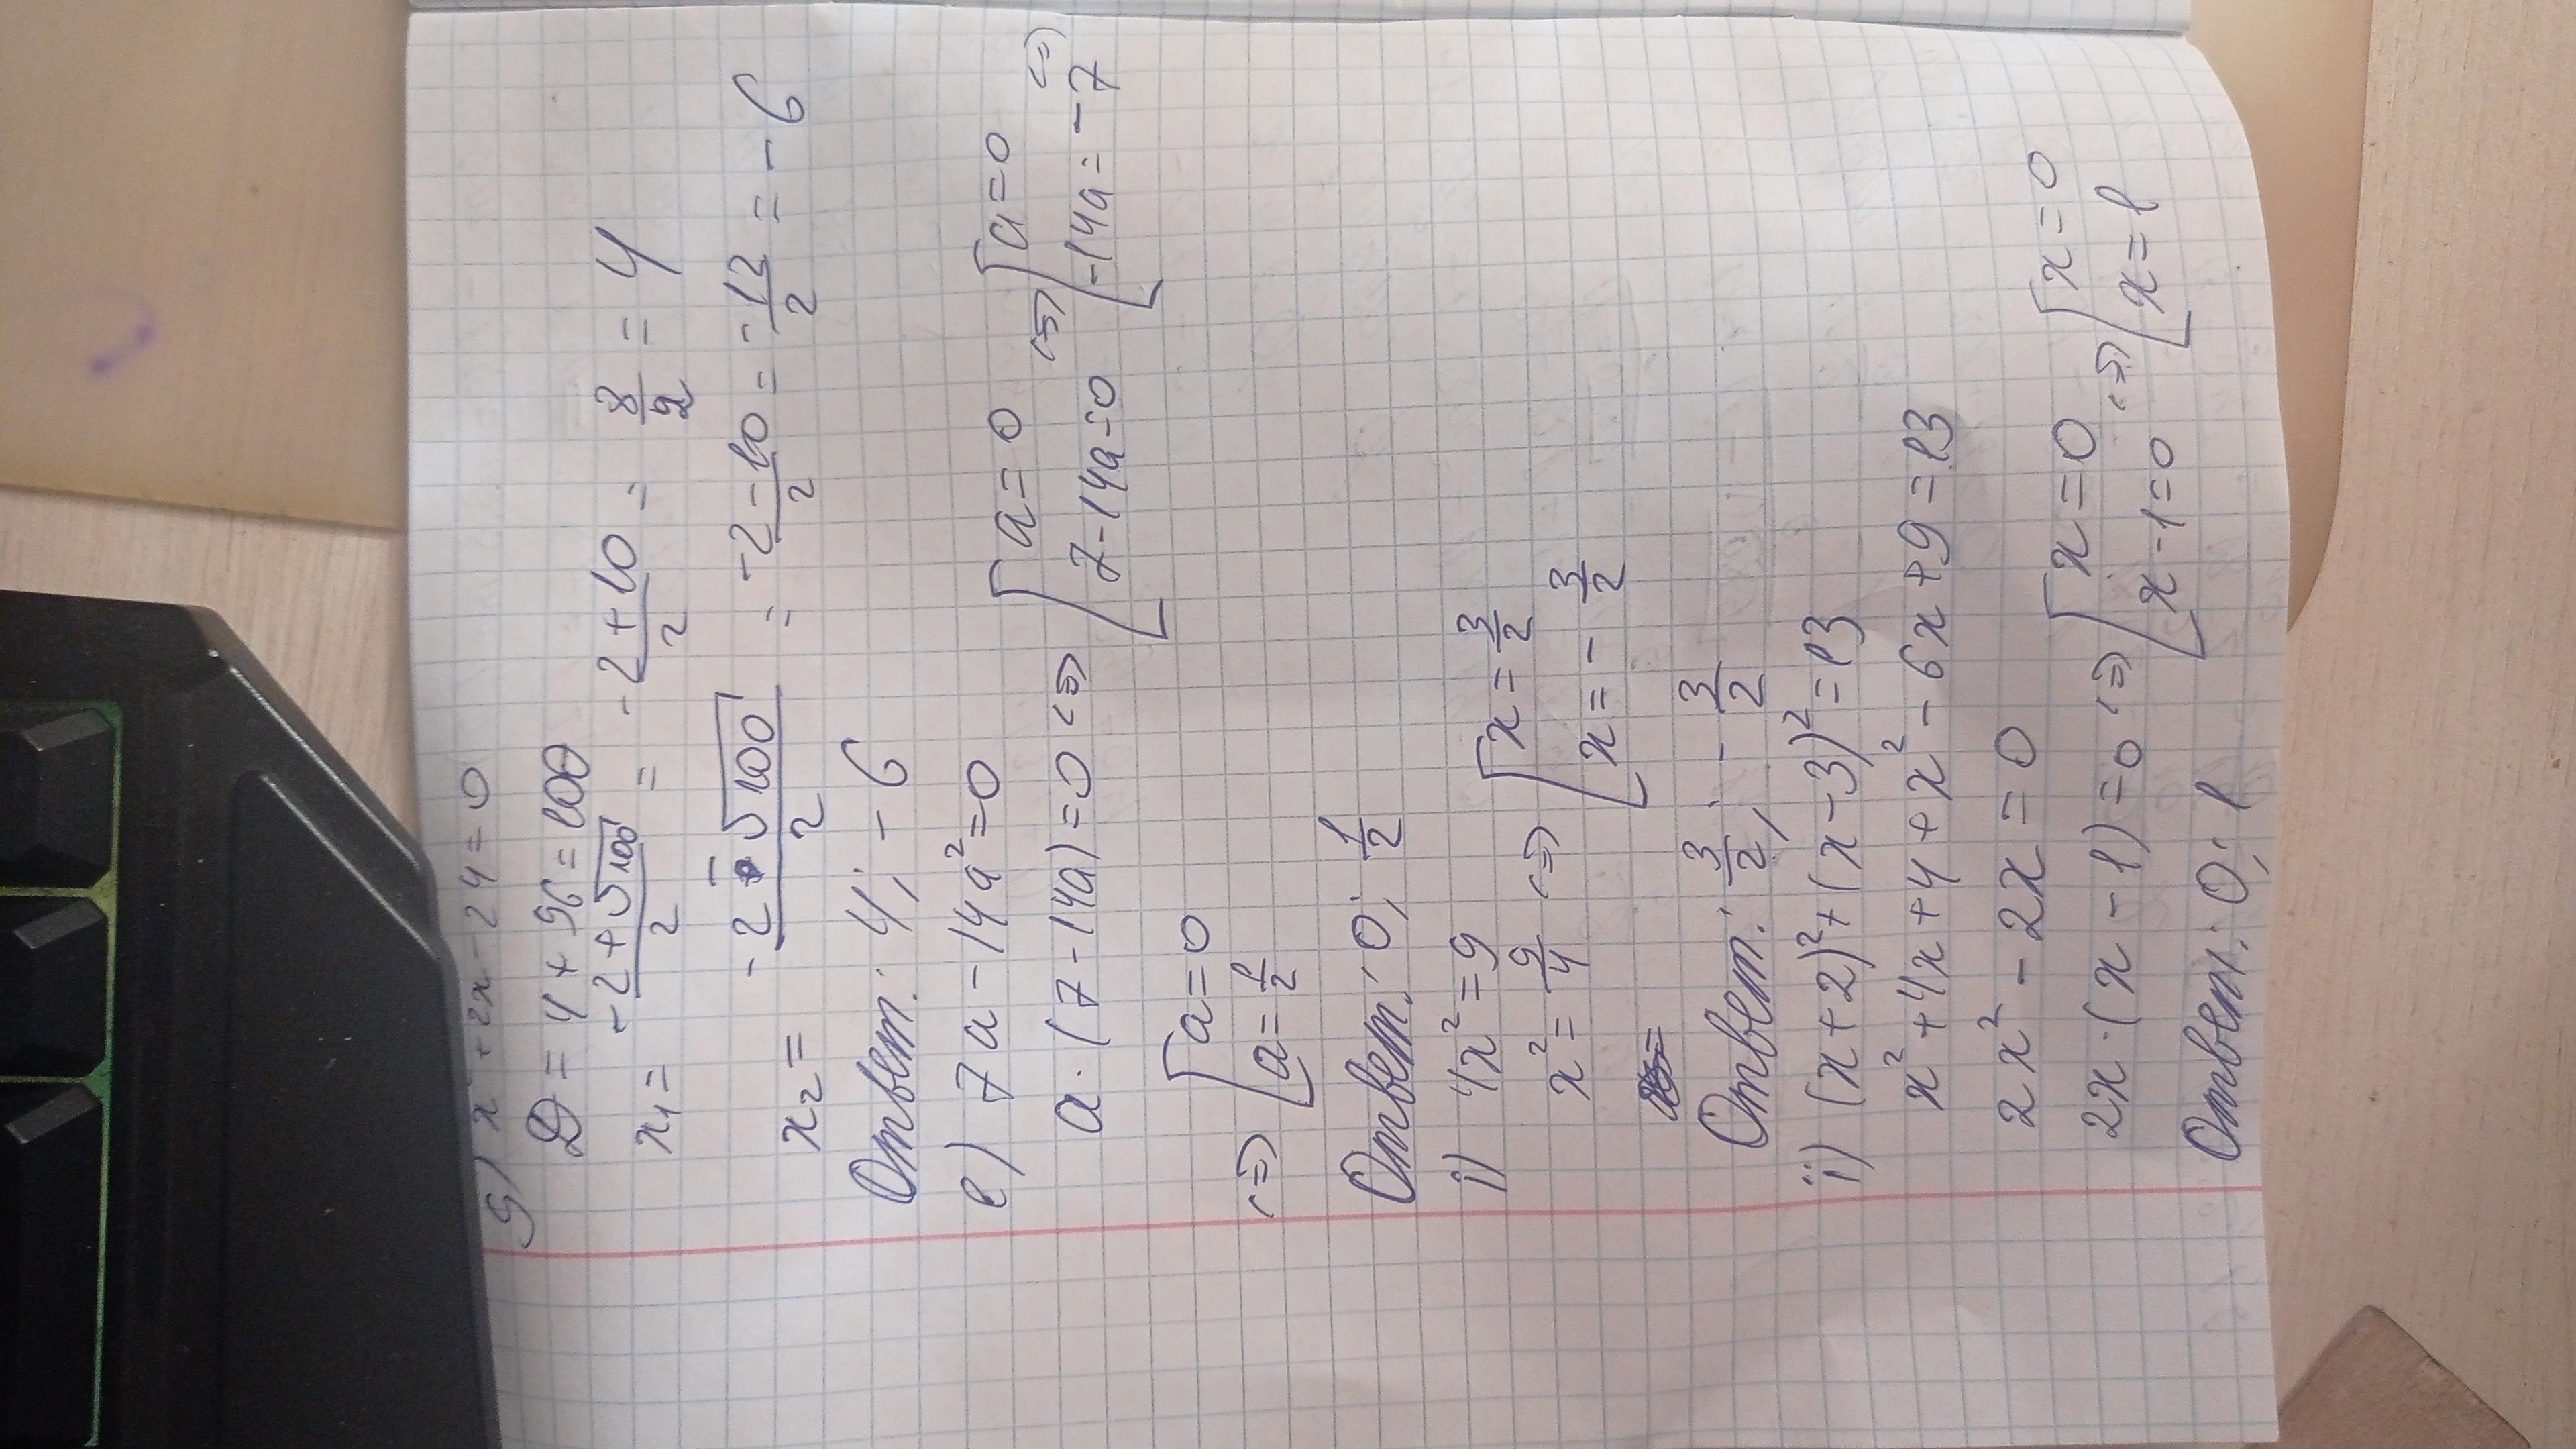 g) x² + 2x - 24 = 0
D = 4 + 96 = 100
x₁ = (-2 + √100)/2 = (-2 + 10)/2 = 8/2 = 4
x₂ = (-2 - √100)/2 = (-2 - 10)/2 = -12/2 = -6
Ответ: 4; -6
e) 7a - 14a² = 0
a · (7 - 14a) = 0 <=> [ a = 0 <=> [ a = 0 <=>
7 - 14a = 0 -14a = -7
<=> [ a = 0
a = 1/2
Ответ: 0; 1/2
i) 4x² = 9
x² = 9/4 <=> [ x = 3/2
x = - 3/2
Ответ: 3/2; - 3/2
ï) (x + 2)² + (x - 3)² = 13
x² + 4x + 4 + x² - 6x + 9 = 13
2x² - 2x = 0
2x · (x - 1) = 0 <=> [ x = 0 <=> [ x = 0
x - 1 = 0 x = 1
Ответ: 0; 1